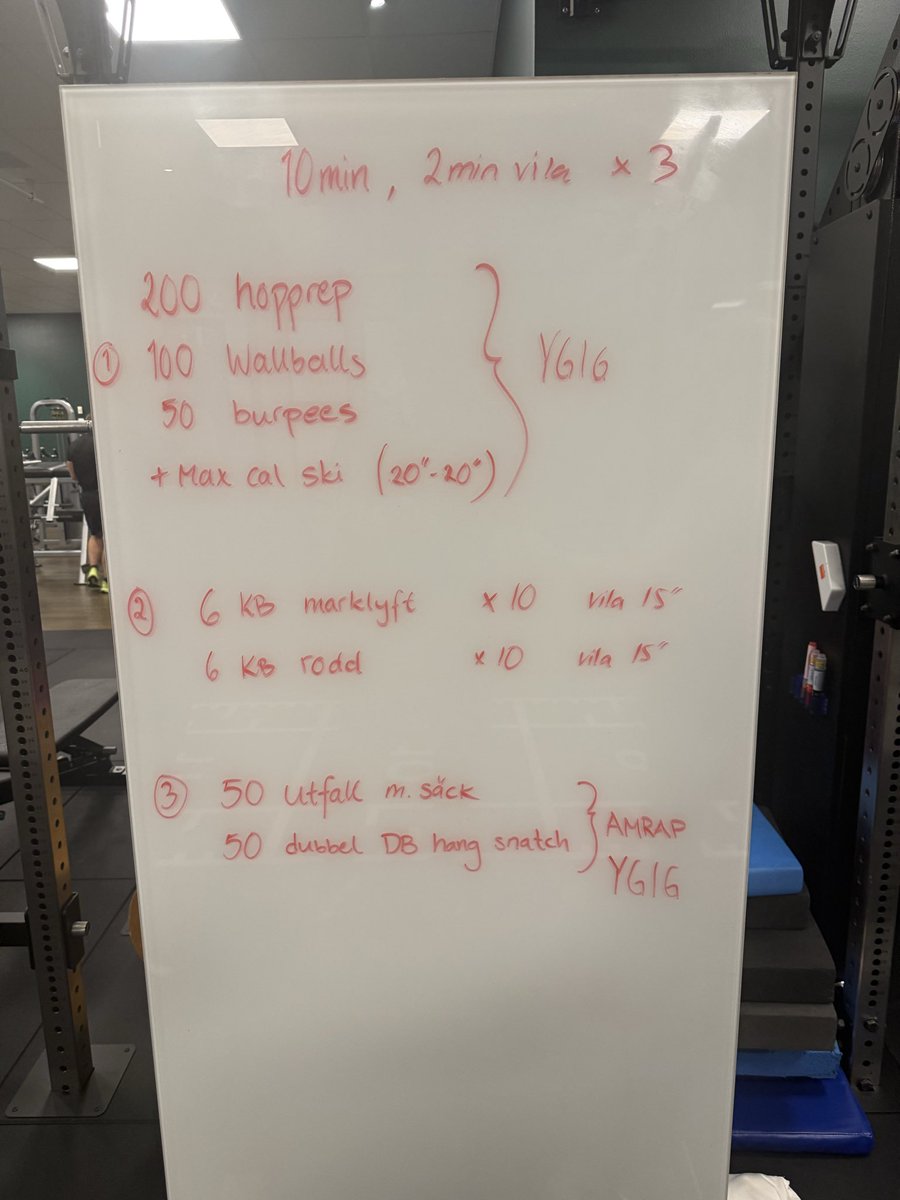 10min, 2min vila x 3
200 hopprep
① 100 Wallballs
50 burpees
+ Max cal ski (20"-20")
YGIG
② 6 KB marklyft x 10 vila 15"
6 KB rodd x 10 vila 15"
③ 50 utfall m. säck
50 dubbel DB hang snatch
AMRAP
YGIG